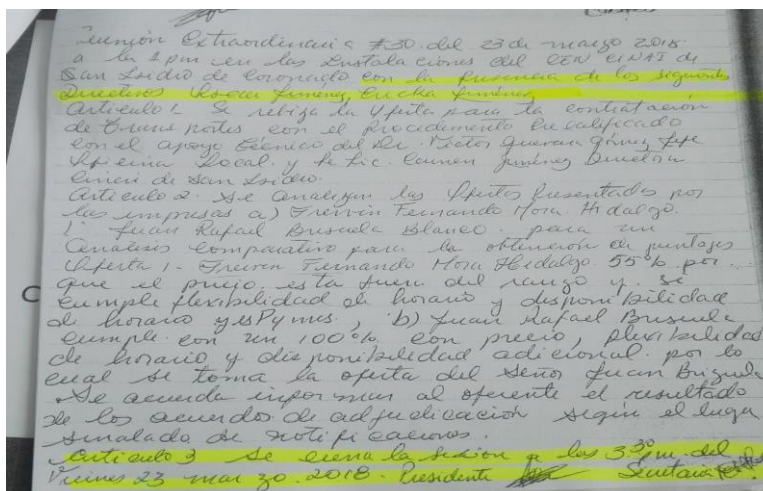 Reunión Extraordinaria #30. del 23 de marzo 2018.
a la 1 pm en las Instalaciones del CEN CINAI de
San Isidro de Coronado con la presencia de los siguientes
Directivos Oscar Jimenez, Ericka Jiménez
Articulo 1. Se rebiza la Oferta para la contratación
de transportes con el procedimiento Precalificado
con el apoyo técnico del Dr. Victor Guevara Gómez Jefe
Oficina Local. y la Lic. Carmen Jiménez Directora
Cinai de San Isidro.
Articulo 2. Se analizan las Ofertas Presentadas por
las empresas a) Freivin Fernando Mora Hidalgo.
1 Juan Rafael Brisuela Blanco. para un
Analisis comparativo para la obtención de puntajes
Oferta 1- Freivin Fernando Mora Hidalgo. 55% por
que el precio esta fuera del rango y si
cumple flexibilidad de horario y disponibilidad
de horario y es Pymes, b) Juan Rafael Brisuela
cumple con un 100% con precio, flexibilidad
de horario y disponibilidad adicional. por lo
cual se toma la oferta del Señor Juan Brizuela
Se acuerda informar al oferente el resultado
de los acuerdos de adjudicación según el lugar
señalado de notificaciones.
Articulo 3 Se cierra la sesión a las 3:30 pm. del
Viernes 23 marzo. 2018. Presidente Secretaria